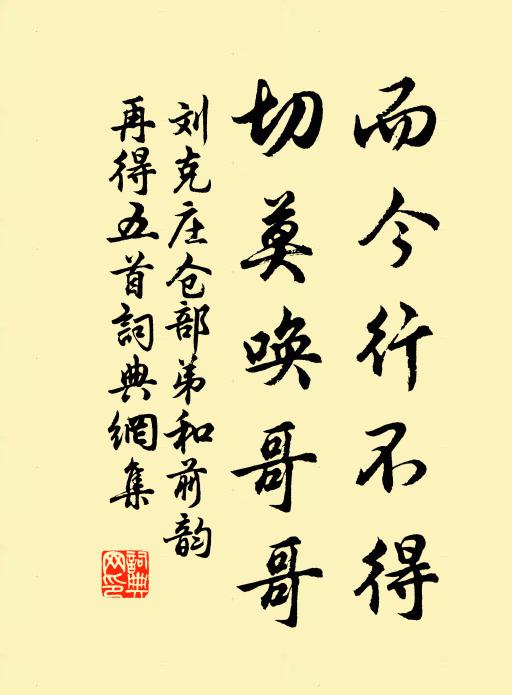 而今行不得
切莫唤哥哥
刘克庄仓部弟和前韵
再得五首詞典網集
詞典網印